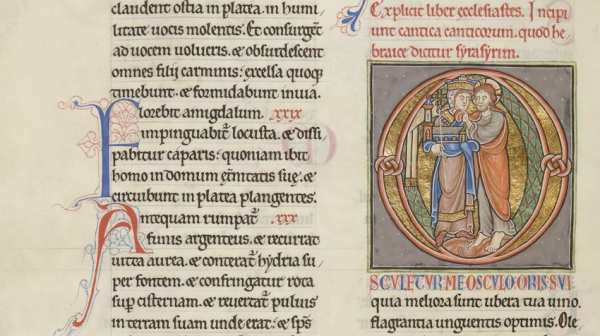 claudent ostia in platea. in humi
litate uocis molentis. Et consurgent
ad uocem uolucris. & obsurdescent
omnes filij carminis; excelsa quoq;
timebunt. & formidabunt in uia.
Florebit amigdalum. xxix
impinguabit᷑ locusta. & dissi
pabitur caparis: quoniam ibit
homo in domum et̃nitatis suę. &
circuibunt in platea plangentes.
Antequam rumpat᷑ xxx
funis argenteus. & recurrat
uitta aurea. & conterat᷑ hydria su
per fontem. & confringatur rota
sup̱ cisternam. & reuertat᷑ puluis
in terram suam unde erat: & sp̅s
Explicit liber ecclesiastes. Incipi
unt cantica canticorum. quod he
braice dicitur syrasyrim.
O
SCULETUR ME OSCULO ORIS SUI
quia meliora sunt ubera tua uino.
flagrantia unguentis optimis. Ole